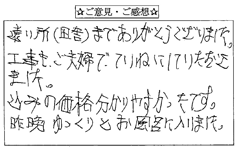 ☆ご意見・ご感想☆
遠い所(田舎)までありがとうございました。
工事も、ご夫婦でていねいにしていただき
ました。
込みの価格分かりやすかったです。
昨晩ゆっくりとお風呂に入りました。